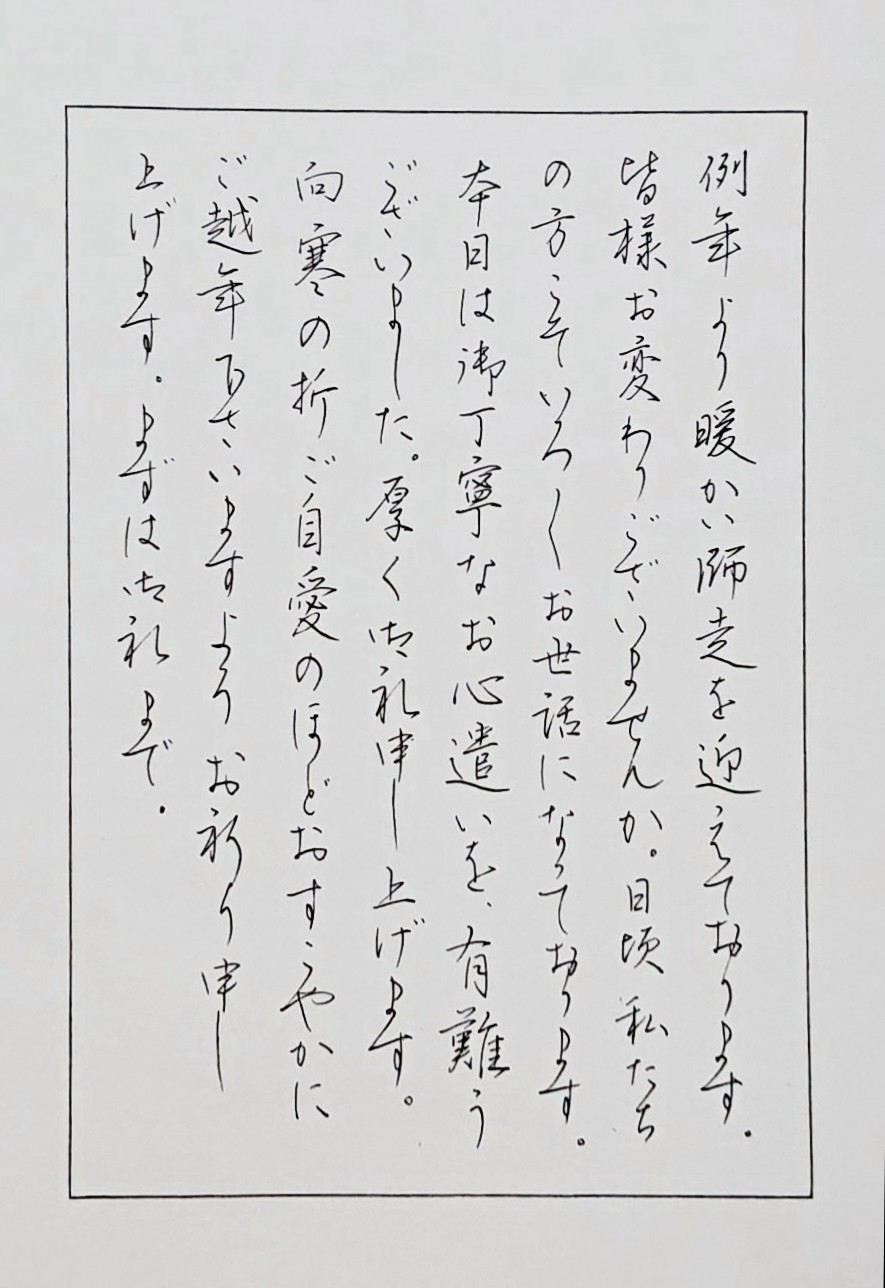 例年より暖かい師走を迎えております。
皆様お変わりございませんか。日頃私たち
の方こそいろ〳〵お世話になっております。
本日は御丁寧なお心遣いを、有難う
ございました。厚く御礼申し上げます。
向寒の折ご自愛のほどおすこやかに
ご越年下さいますようお祈り申し
上げます。まずは御礼まで。